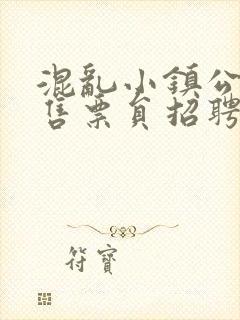 混亂小鎮公
售票員招聘
符寶